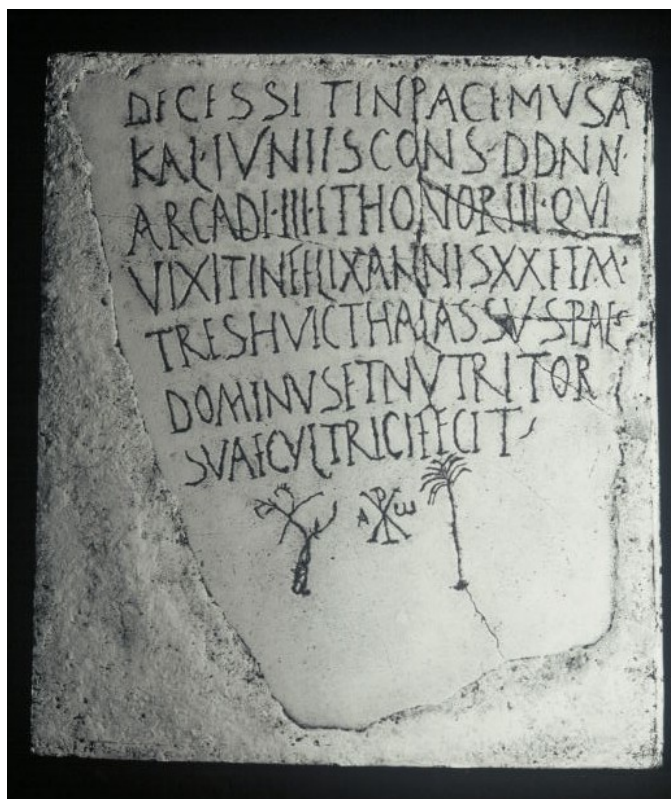 DECESSIT IN PACE MVSA
KAL·IVNIIS CONS·DDNN·
ARCADI·III·ET HONORIII·QVI
VIXIT INFELIX ANNIS XX ET M·
TRES HVIC THALASSVS
DOMINVS ET NVTRITOR
SVAE CVLTRICI FECIT
A ☧ ω